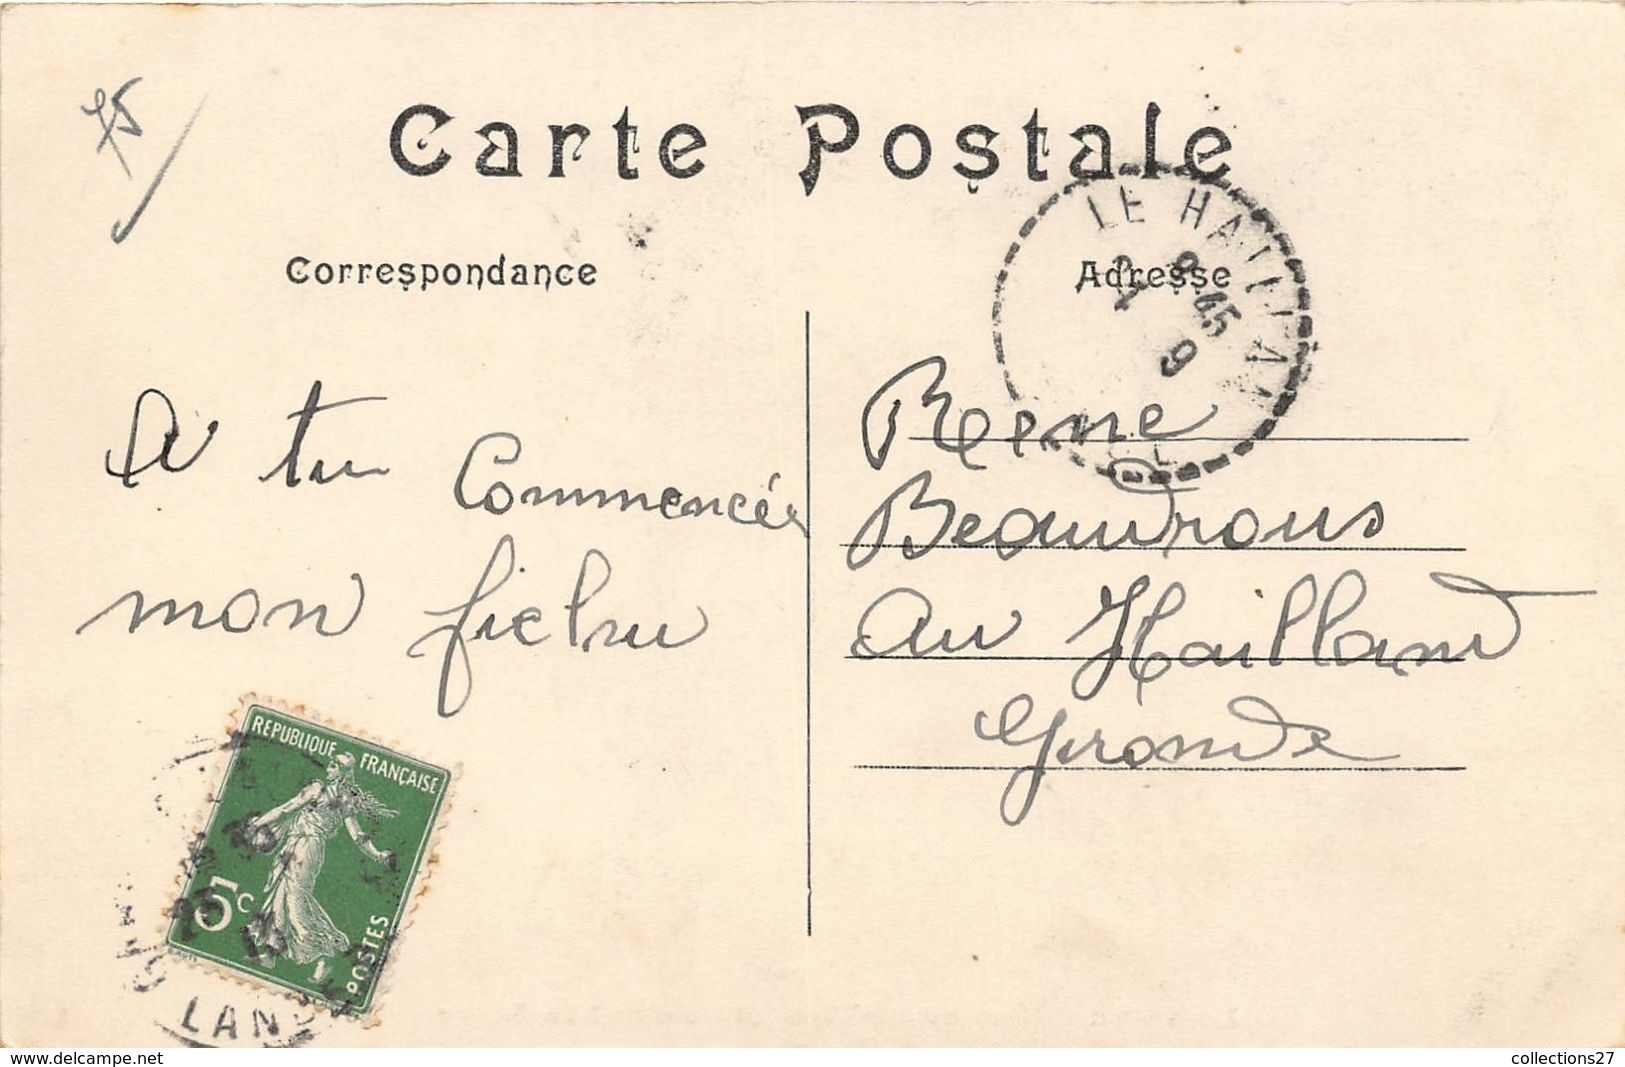 75
Carte Postale
Correspondance
Adresse
LE HAILLAN
9 45
9
A tu Commencée
mon fichu
Rene
Beaudrous
au Hailland
Gironde
REPUBLIQUE FRANÇAISE
5c
POSTES
LAND
collections27